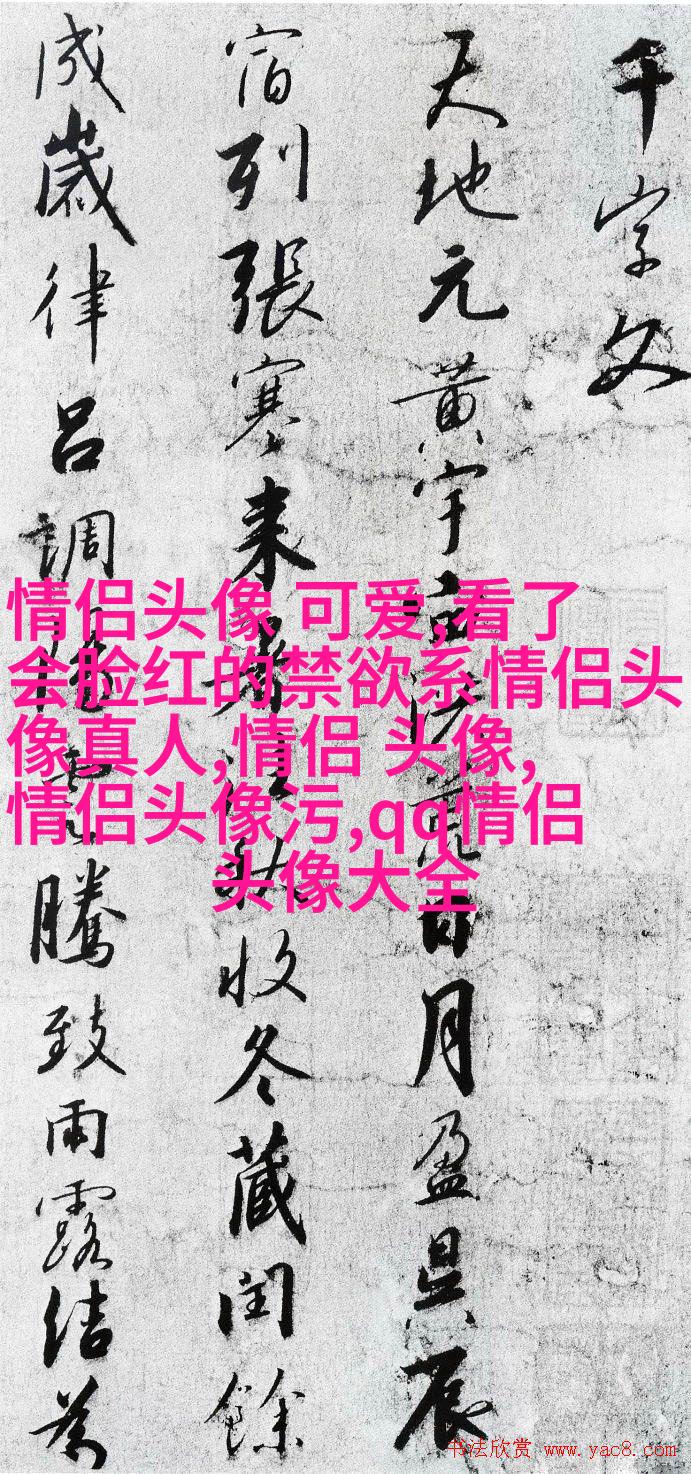 千字文
天地元黄宇宙洪荒日月盈昃辰
宿列張寒来暑往秋收冬藏閏餘
成歲律吕調陽雲騰致雨露結為
情侣头像 可爱,看了
会脸红的禁欲系情侣头
像真人,情侣 头像,
情侣头像污,qq情侣
头像大全
书法欣赏 www.yac8.com